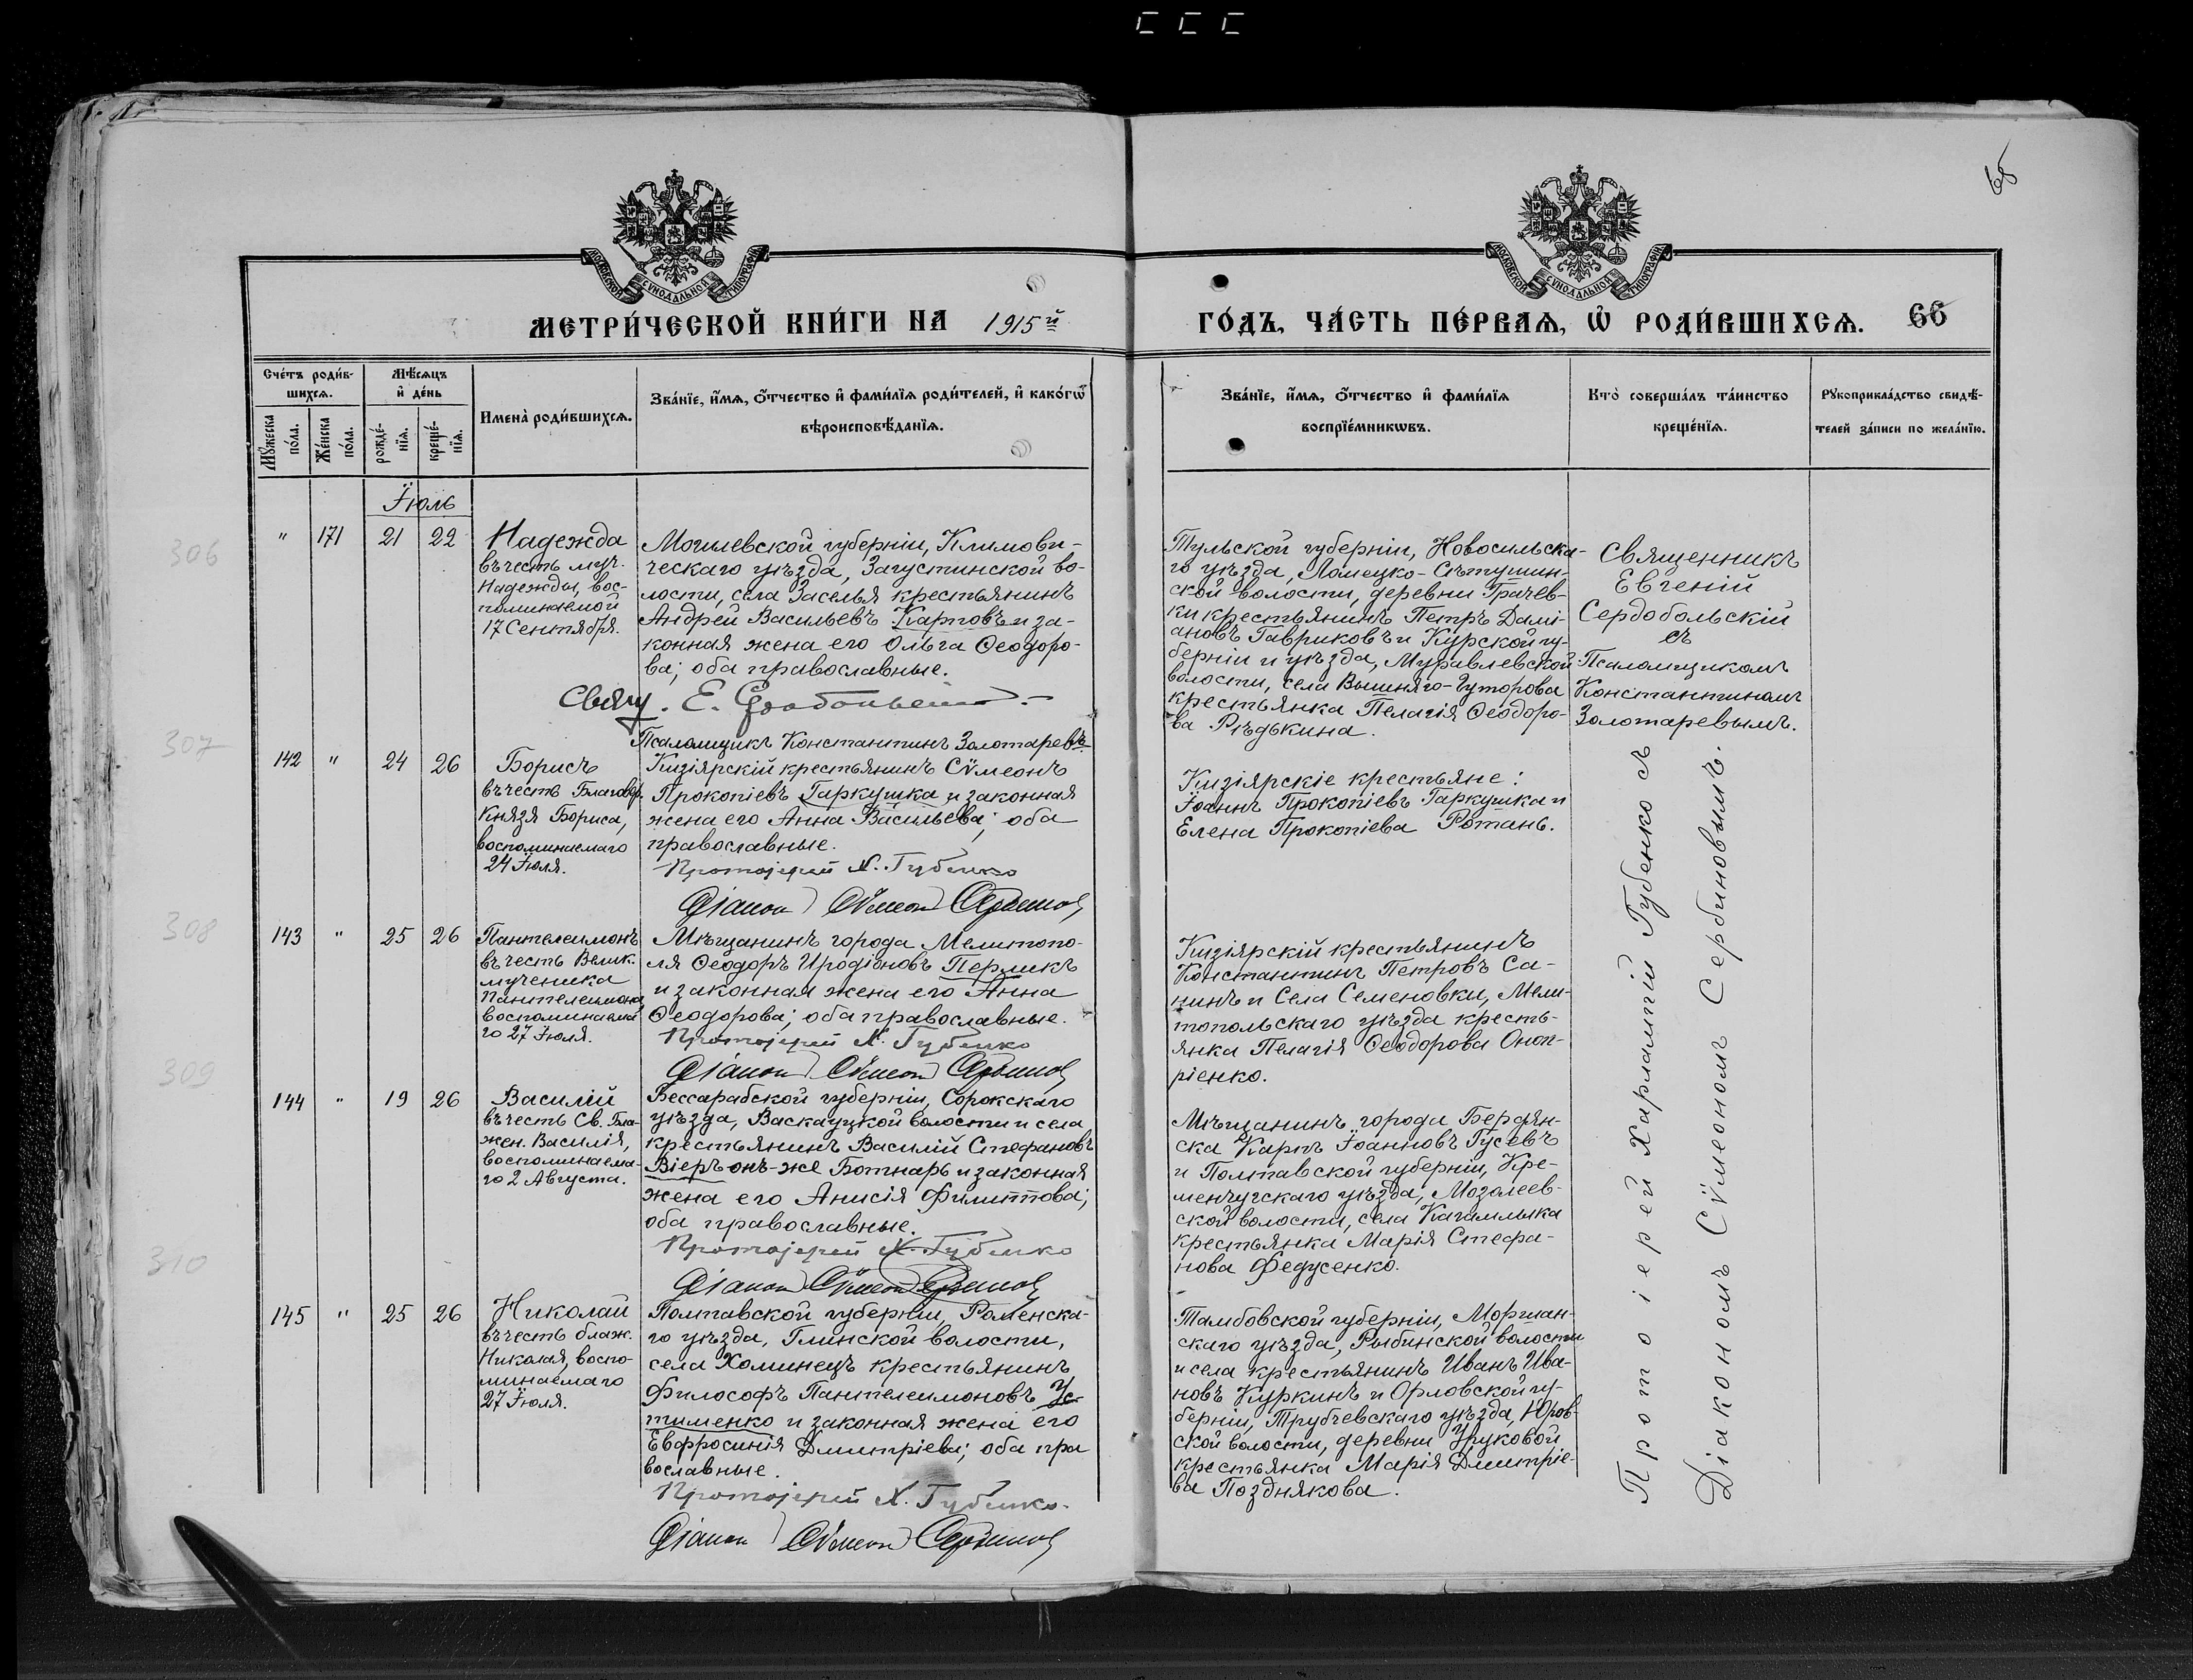 65
МОСКОВСКОЙ СѴНОДАЛЬНОЙ ТИПОГРАФІИ
МОСКОВСКОЙ СѴНОДАЛЬНОЙ ТИПОГРАФІИ
МЕТРИ́ЧЕСКОЙ КНИ́ГИ НА 1915й
ГО́ДЪ, ЧА́СТЬ ПЕ́РВАѦ, Ѡ҆ РОДИ́ВШИХСѦ. 66
Сче́тъ роди́в-
шихсѧ.
Мꙋ́жеска
по́ла.
Же́нска
по́ла.
Мѣ́сѧцъ
и҆ де́нь
рожде́-
нїѧ.
креще́-
нїѧ.
Имена̀ роди́вшихсѧ.
Зва́нїе, и҆́мѧ, ѻ҆́тчество и҆ фами́лїѧ роди́телей, и҆ како́гѡ
вѣроисповѣ́данїѧ.
Зва́нїе, и҆́мѧ, ѻ҆́тчество и҆ фами́лїѧ
воспрїе́мникѡвъ.
Кто̀ соверша́лъ та́инство
креще́нїѧ.
Рꙋкоприкла́дство свидѣ́-
телей за́писи по жела́нїю.
Іюль
306
" 171 21 22
Надежда
въ честь муч.
Надежды, вос-
поминаемой
17 Сентября.
Могилевской губерніи, Климови-
ческаго уѣзда, Загустинской во-
лости, села Заселья крестьянинъ
Андрей Васильевъ Карповъ и за-
конная жена его Ольга Ѳеодоро-
ва; оба православные.
Свящ. Е. Сердобольскій
Псаломщикъ Константинъ Золотаревъ
Тульской губерніи, Новосильска-
го уѣзда, Ломецко-Сѣтушин-
ской волости, деревни Грачев-
ки крестьянинъ Петръ Дамі-
ановъ Гавриковъ и Курской гу-
берніи и уѣзда, Муравлевской
волости, села Вышняго-Гуторова
крестьянка Пелагія Ѳеодоро-
ва Рѣдькина.
Священникъ
Евгеній
Сердобольскій
съ
Псаломщикомъ
Константиномъ
Золотаревымъ.
307
142 " 24 26
Борисъ
въ честь Благовѣр.
Князя Бориса,
воспоминаемаго
24 Іюля.
Кизіярскій крестьянинъ Сѵмеонъ
Прокопіевъ Гаркушка и законная
жена его Анна Васильева; оба
православные.
Протоіерей Х. Губенко
Діаконъ Сѵмеонъ Сербиновъ
Кизіярскіе крестьяне:
Іоаннъ Прокопіевъ Гаркушка и
Елена Прокопіева Ротань.
308
143 " 25 26
Пантелеимонъ
въ честь Велик.
мученика
Пантелеимона
воспоминаема
го 27 Іюля.
Мѣщанинъ города Мелитопо-
ля Ѳеодоръ Иродіоновъ Перликъ
и законная жена его Анна
Ѳеодорова; оба православные.
Протоіерей Х. Губенко
Діаконъ Сѵмеонъ Сербиновъ
Кизіярскій крестьянинъ
Константинъ Петровъ Са-
нинъ и Села Семеновки, Мели-
топольскаго уѣзда кресть-
янка Пелагія Ѳеодорова Оноп-
ріенко.
309
144 " 19 26
Василій
въ честь Св. Бла-
жен. Василія,
воспоминаема-
го 2 Августа.
Бессарабской губерніи, Сорокскаго
уѣзда, Васкауцкой волости и села
крестьянинъ Василій Стефановъ
Віеръ онъ-же Ботнарь и законная
жена его Анисія Филиппова;
оба православные.
Протоіерей Х. Губенко
Діаконъ Сѵмеонъ Сербиновъ
Мѣщанинъ города Бердян-
ска Карпъ Іоанновъ Гусевъ
и Полтавской губерніи, Кре-
менчугскаго уѣзда, Мозолеев-
ской волости, села Кагамлыка
крестьянка Марія Стефа-
нова Федусенко.
310
145 " 25 26
Николай
въ честь блаж.
Николая, воспо-
минаемаго
27 Іюля.
Полтавской губерніи, Роменска-
го уѣзда, Глинской волости,
села Хоминецъ крестьянинъ
Философъ Пантелеимоновъ Ус-
тименко и законная жена его
Евфросинія Дмитріева; оба пра
вославные.
Протоіерей Х. Губенко.
Діаконъ Сѵмеонъ Сербиновъ
Тамбовской губерніи, Моршан-
скаго уѣзда, Рыбинской волости
и села крестьянинъ Иванъ Ива-
новъ Куркинъ и Орловской гу-
берніи, Трубчевскаго уѣзда, Юров-
ской волости, деревни Уруковой
крестьянка Марія Дмитріе-
ва Позднякова.
Протоіерей Харлампій Губенко съ
Діакономъ Сѵмеономъ Сербиновымъ.